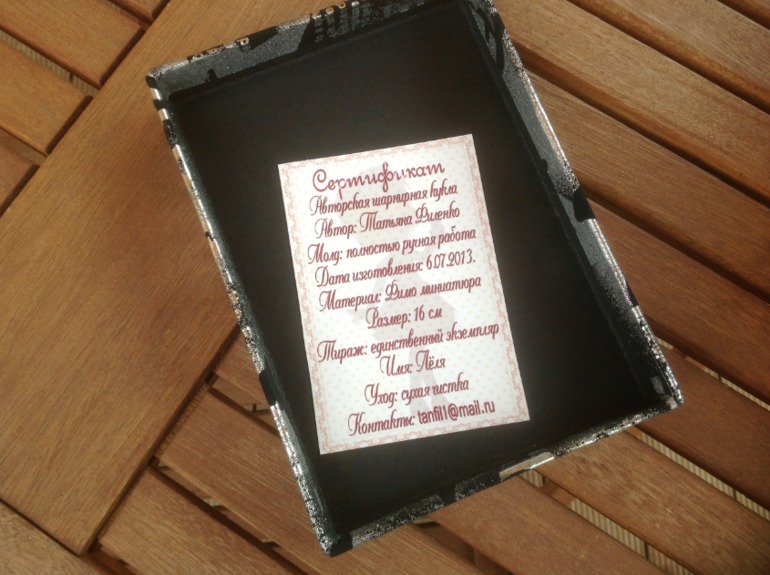 Сертификат
Авторская шарнирная кукла
Автор: Татьяна Филенко
Молд: полностью ручная работа
Дата изготовления: 6.07.2013.
Материал: Фимо миниатюра
Размер: 16 см
Тираж: единственный экземпляр
Имя: Лёля
Уход: сухая чистка
Контакты: tanfil1@mail.ru